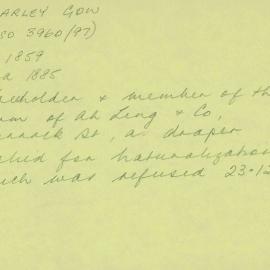 ARLEY GOW
SO 3960/97)
1859
a 1885
eholder & member of th
m of Ah Ling & Co,
nnack St, a draper
lied for naturalization
ich was refused 23.12